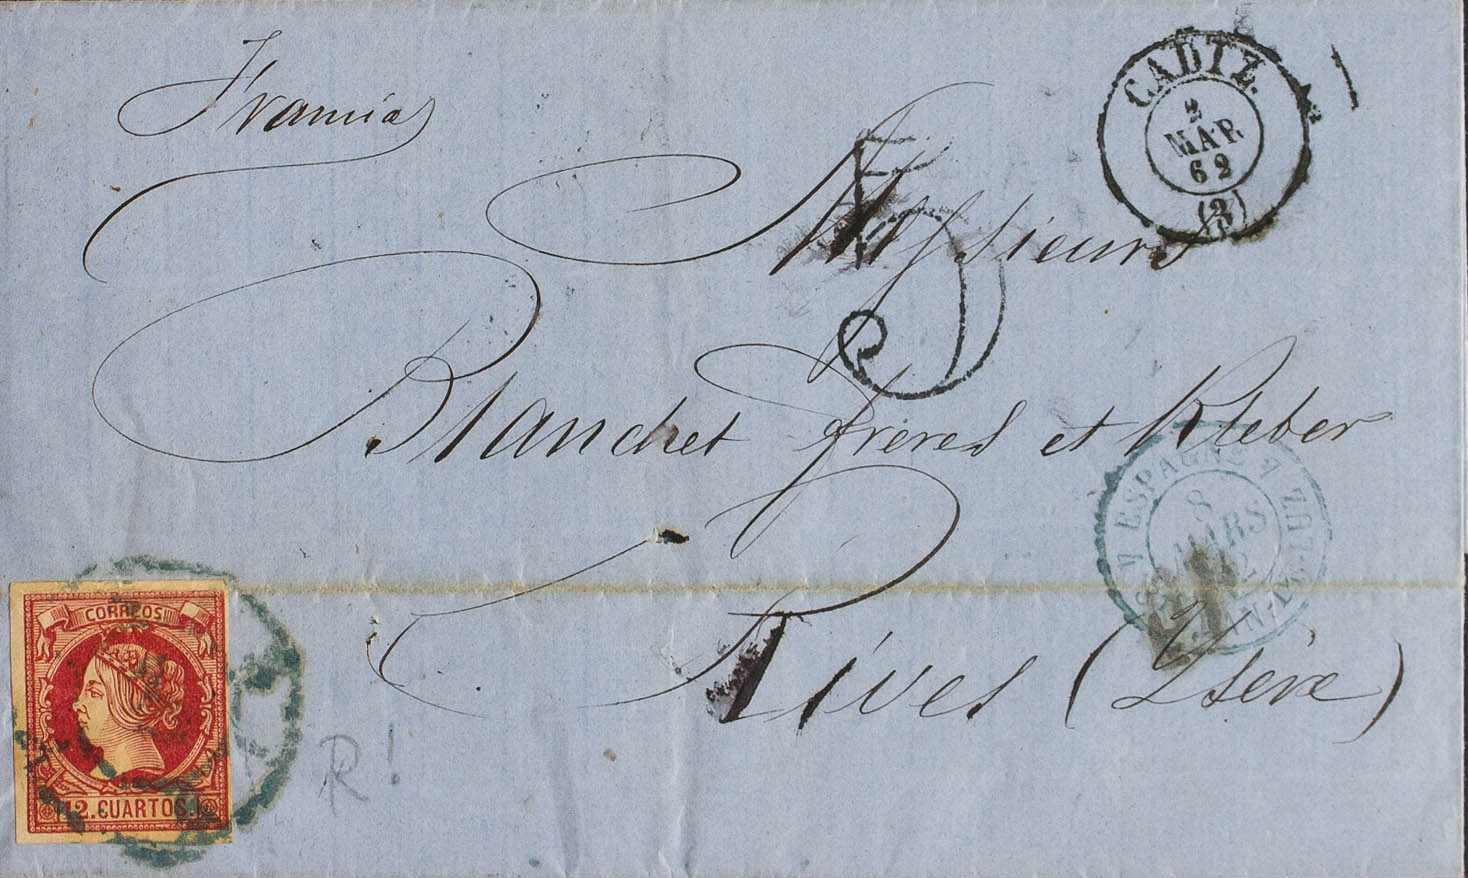 Francia
CADIZ.
2
MAR
62
(3)
Messieurs
Blanchet frères et Kleber
ESPAGNE
8
MARS
Rives (Isère)
CORREOS
12. CUARTOS.
R!